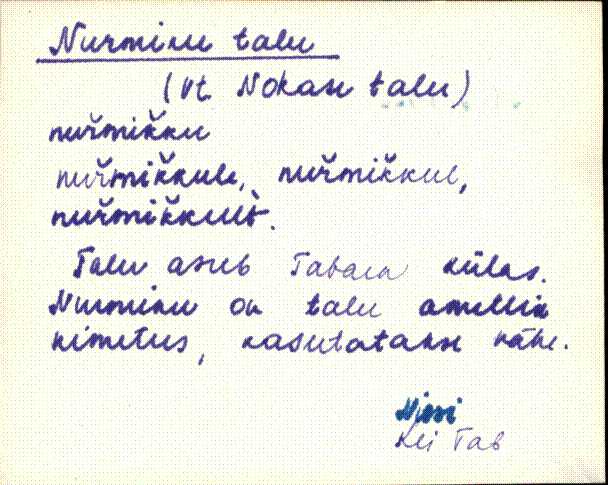 Nurmiku talu
(vt. Nokasu talu)
nuřmikku
nuřmikkule, nuřmikkul,
nuřmikkult.
Talu asub Tabara külas.
Nurmiku on talu ametlik
nimetus, kasutatakse vähe.
Nissi
Kei Tab